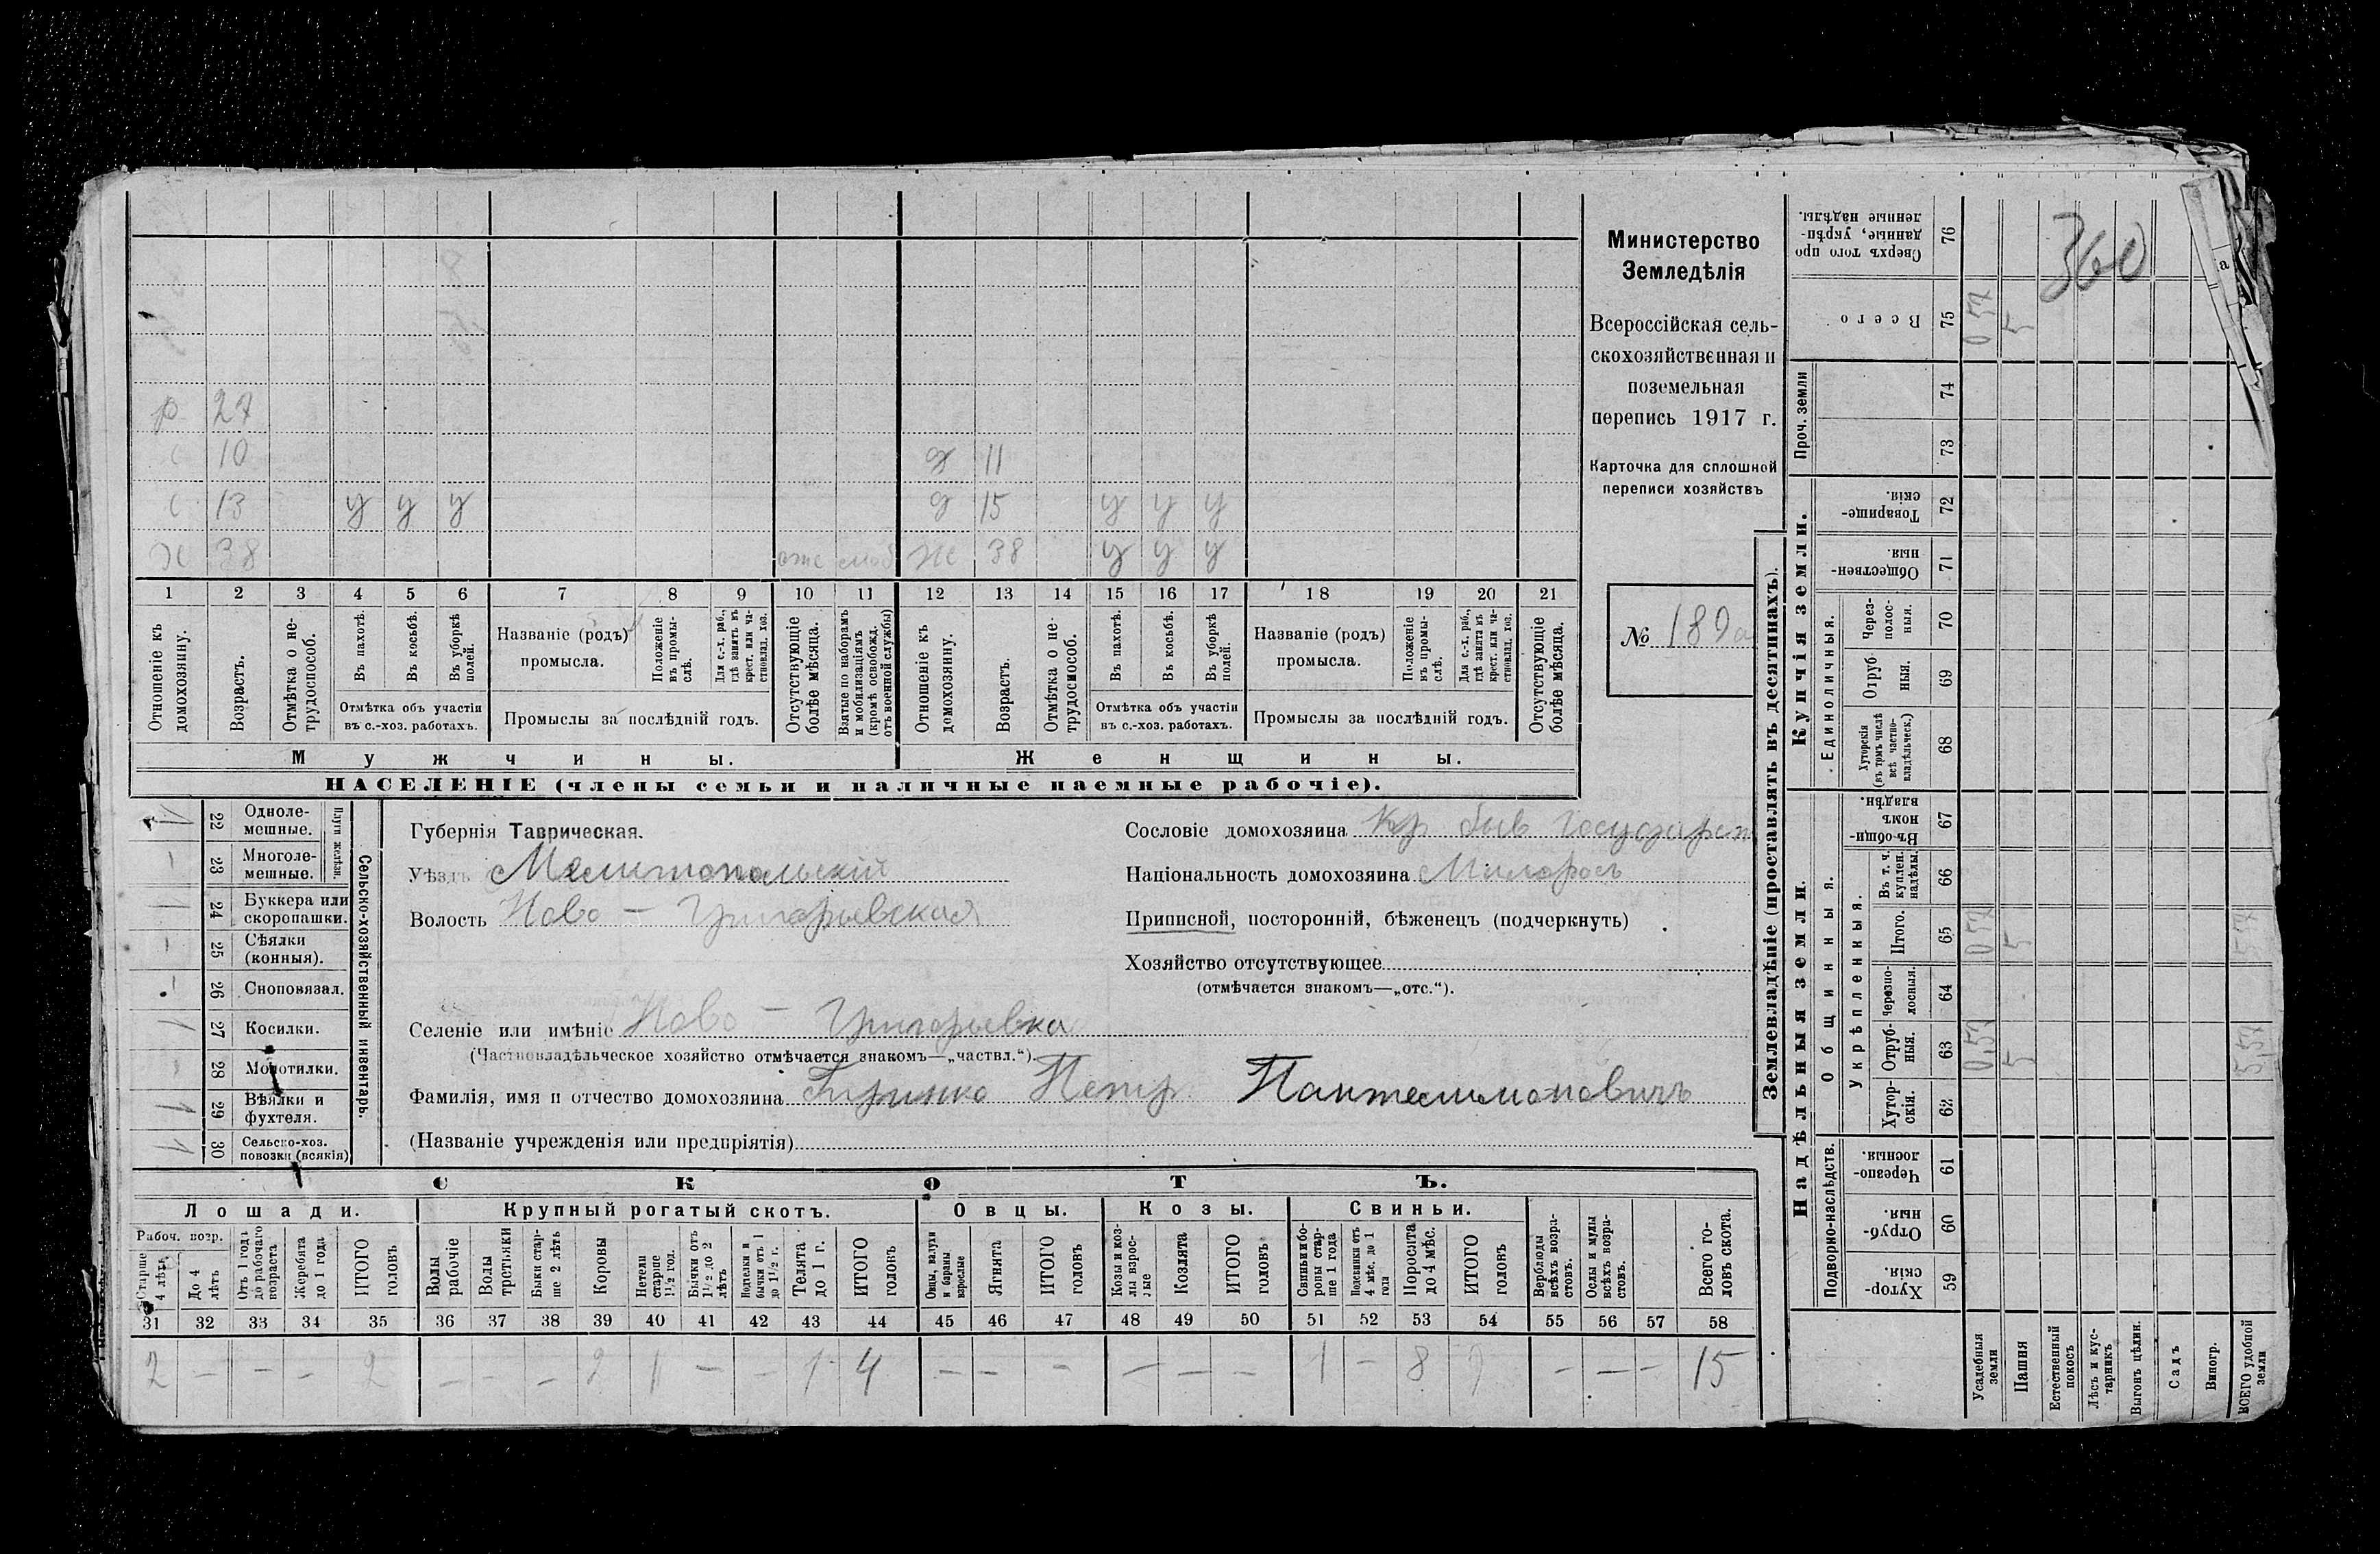 р 27
с 10 д 11
с 13 у у у д 15 у у у
Х 38 Ж 38 у у у
1 2 3 4 5 6 7 8 9 10 11 12 13 14 15 16 17 18 19 20 21
Отношеніе къ домохозяину.
Возрастъ.
Отмѣтка о не-трудоспособ.
Въ пахотѣ.
Въ косьбѣ.
Въ уборкѣ полей.
Отмѣтка объ участіи
въ с.-хоз. работахъ.
Названіе (родъ)
промысла.
Положеніе въ промы-слѣ.
Для с.-х. раб., гдѣ занятъ въ крест. или ча-стновлад. хоз.
Промыслы за послѣдній годъ.
Отсутствующіе болѣе мѣсяца.
Взятые по наборамъ и мобилизаціямъ (кромѣ освобожд. отъ военной службы)
Отношеніе къ домохозяину.
Возрастъ.
Отмѣтка о не-трудоспособ.
Въ пахотѣ.
Въ косьбѣ.
Въ уборкѣ полей.
Отмѣтка объ участіи
въ с.-хоз. работахъ.
Названіе (родъ)
промысла.
Положеніе въ промы-слѣ.
Для с.-х. раб., гдѣ занята въ крест. или ча-стновлад. хоз.
Промыслы за послѣдній годъ.
Отсутствующіе болѣе мѣсяца.
Мужчины.
Женщины.
НАСЕЛЕНІЕ (члены семьи и наличные наемные рабочіе).
Министерство
Земледѣлія
Всероссійская сель-
скохозяйственная и
поземельная
перепись 1917 г.
Карточка для сплошной
переписи хозяйствъ
№ 189а
Сельско-хозяйственный инвентарь.
Плуги желѣзн.
1 22 Одноле-мешные.
– 23 Многоле-мешные.
24 Буккера или скоропашки.
– 25 Сѣялки (конныя).
– 26 Сноповязал.
1 27 Косилки.
– 28 Молотилки.
1 29 Вѣялки и фухтеля.
1 30 Сельско-хоз. повозки (всякія)
Губернія Таврическая.
Уѣздъ Мелитопольскій
Волость Ново – Григорьевская
Сословіе домохозяина Кр быв государст
Національность домохозяина Малорось
Приписной, посторонній, бѣженецъ (подчеркнуть)
Хозяйство отсутствующее
(отмѣчается знакомъ—„отс.“).
Селеніе или имѣніе Ново – Григорьевка
(Частновладѣльческое хозяйство отмѣчается знакомъ—„частвл.“)
Фамилія, имя и отчество домохозяина Гиринко Петр Пантелимоновичъ
(Названіе учрежденія или предпріятія)
СКОТЪ.
Лошади.
Крупный рогатый скотъ.
Овцы.
Козы.
Свиньи.
Рабоч. возр.
Старше 4 лѣтъ
До 4 лѣтъ
Отъ 1 года до рабочаго возраста
Жеребята до 1 года
ИТОГО головъ
Волы рабочіе
Волы третьяки
Быки стар-ше 2 лѣтъ
Коровы
Нетели старше 1½ год.
Бычки отъ 1½ до 2 лѣтъ
Нетелки и бычки отъ 1 до 1½ г.
Телята до 1 г.
ИТОГО головъ
Овцы, валухи и бараны взрослые
Ягнята
ИТОГО головъ
Козы и коз-лы взрос-лые
Козлята
ИТОГО головъ
Свиньи и бо-ровы стар-ше 1 года
Подсвинки отъ 4 мѣс. до 1 года
Поросята до 4 мѣс.
ИТОГО головъ
Верблюды всѣхъ возра-стовъ.
Ослы и мулы всѣхъ возра-стовъ.
Всего го-ловъ скота.
31 32 33 34 35 36 37 38 39 40 41 42 43 44 45 46 47 48 49 50 51 52 53 54 55 56 57 58
2 – – – 2 – – – 2 1 – – 1 4 – – – – – – 1 – 8 9 – – – 15
Землевладѣніе (проставлять въ десятинахъ).
Надѣльныя земли.
Купчія земли.
Проч. земли
Подворно-наслѣдств.
Общинныя.
Укрѣпленныя.
Единоличныя.
Сверхъ того про данные, укрѣп-ленные надѣлы. 76
Всего 75 0 57 5
74
73
Товарище-скія. 72
Обществен-ныя. 71
Через-полос-ныя. 70
Отруб ныя. 69
Хуторскія (въ томъ числѣ всѣ частно-владѣльческ.) 68
Въ общин-номъ владѣн. 67
Въ т. ч. куплен. надѣлы. 66
Итого. 65 0 57 5 5 57
Черезпо-лосныя. 64
Отруб-ныя. 63 0,57 5 5,57
Хутор-скія. 62
Черезпо-лосныя. 61
Отруб-ныя. 60
Хутор-скія. 59
Усадебныя земли
Пашня
Естественный покосъ
Лѣсъ и кус-тарникъ
Выгонъ цѣлин.
Садъ
Виногр.
ВСЕГО удобной земли
360